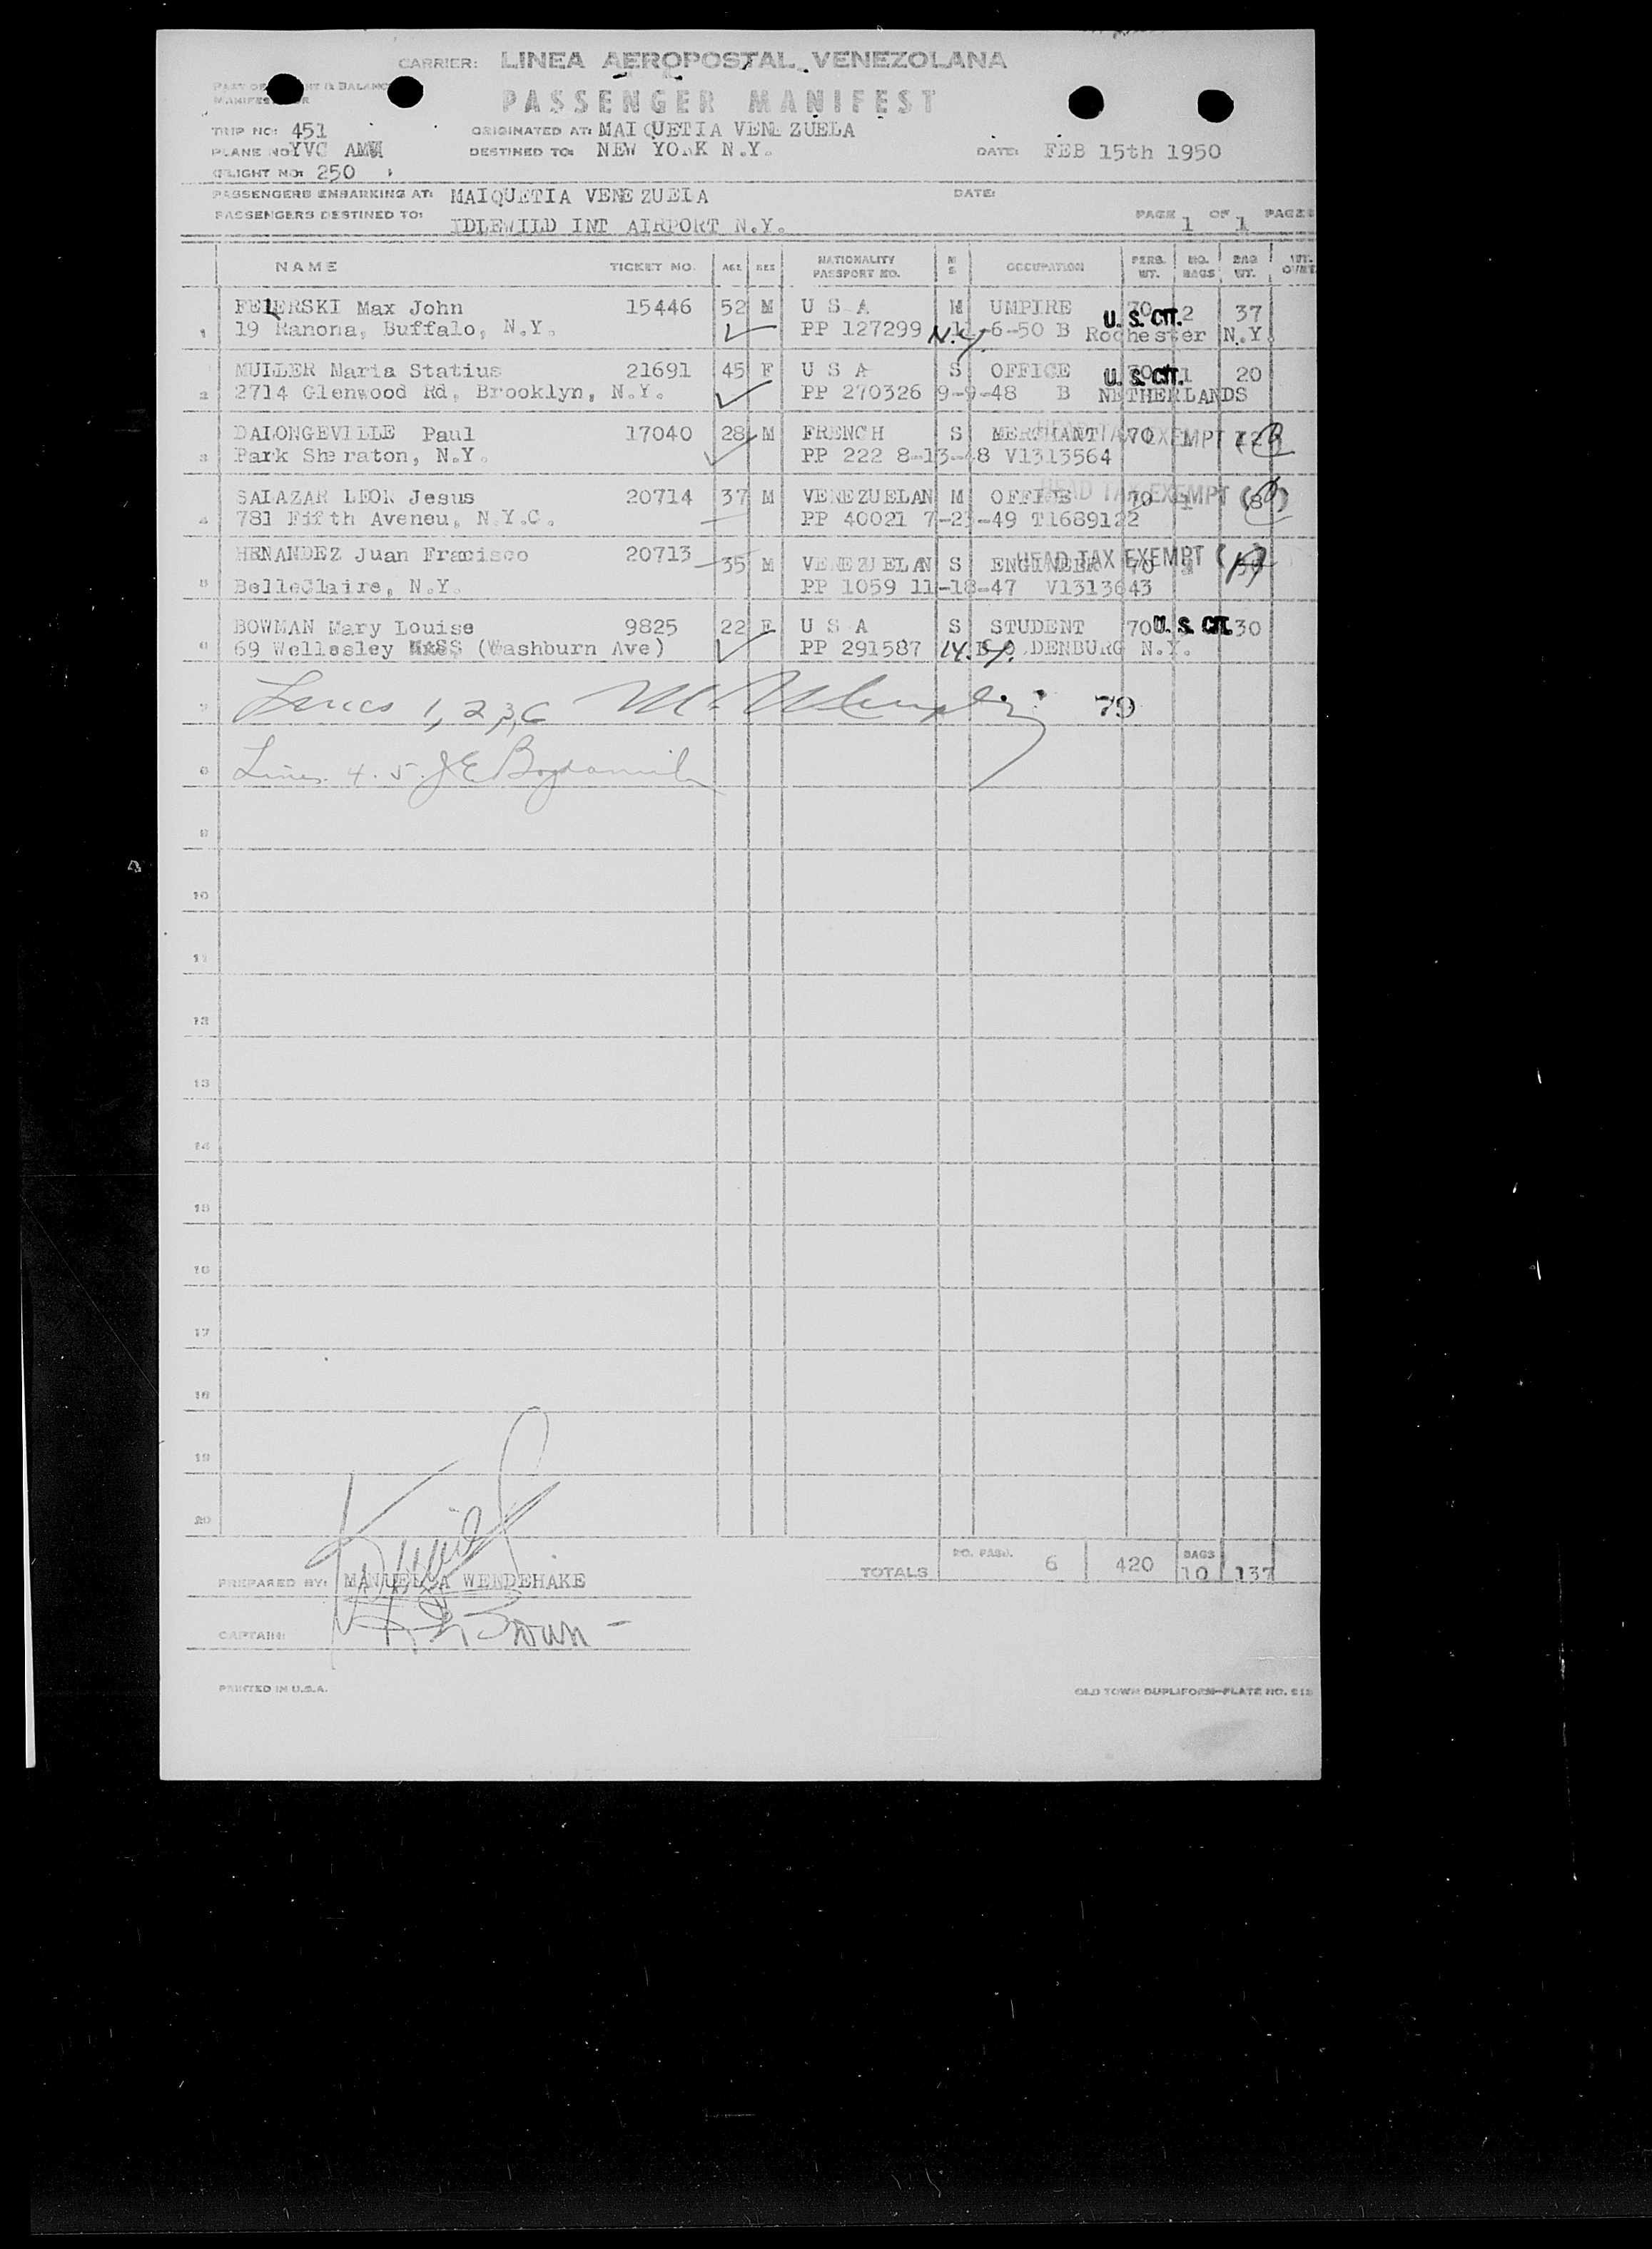 CARRIER: LINEA AEROPOSTAL VENEZOLANA
PASSENGER MANIFEST
TRIP NO: 451 ORIGINATED AT: MAIQUETIA VENEZUELA
PLANE NO: YVC DESTINED TO: NEW YORK N.Y. DATE: FEB 15th 1950
FLIGHT NO: 250
PASSENGERS EMBARKING AT: MAIQUETIA VENEZUELA DATE:
PASSENGERS DESTINED TO: IDLEWILD INT AIRPORT N.Y. PAGE 1 OF 1 PAGES
NAME TICKET NO. AGE SEX NATIONALITY PASSPORT NO. M S OCCUPATION PERS. WT. NO. BAGS BAG WT.
FELERSKI Max John 15446 52 M U S A M UMPIRE 70 U. S. CIT. 2 37
1 19 Ranona, Buffalo, N.Y. PP 127299 N.Y. 11-6-50 B Rochester N.Y.
MULLER Maria Statius 21691 45 F U S A S OFFICE 70 U. S. CIT. 1 20
2 2714 Glenwood Rd, Brooklyn, N.Y. PP 270326 9-9-48 B NETHERLANDS
DALONGEVILLE Paul 17040 28 M FRENCH S MERCHANT 70 HEAD TAX EXEMPT
3 Park Sheraton, N.Y. PP 222 8-13-48 V1313564
SALAZAR LEON Jesus 20714 37 M VENEZUELAN M OFFICE 70 HEAD TAX EXEMPT
4 781 Fifth Aveneu, N.Y.C. PP 40021 7-23-49 T1689122
HENANDEZ Juan Francisco 20713 35 M VENEZUELAN S ENGINEER 70 HEAD TAX EXEMPT
5 BelleClaire, N.Y. PP 1059 11-18-47 V1313643
BOWMAN Mary Louise 9825 22 F U S A S STUDENT 70 U. S. CIT. 30
6 69 Wellesley MASS (Washburn Ave) PP 291587 N.Y. B O DENBURG N.Y.
7 Lines 1, 2, 3, 6 79
8 Lines 4. 5.
9
10
11
12
13
14
15
16
17
18
19
20
TOTALS NO. PASS. 6 420 BAGS 10 137
PREPARED BY: MANUELLA WENDEHAKE
CAPTAIN:
PRINTED IN U.S.A. OLD TOWN DUPLIFORM-PLATE NO.